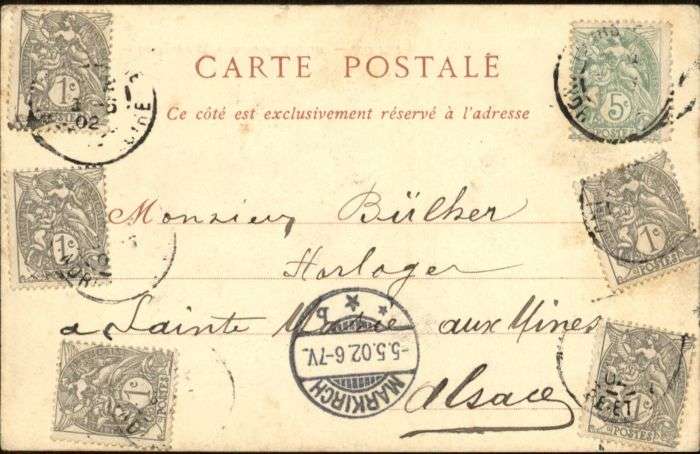 CARTE POSTALE
Ce côté est exclusivement réservé à l'adresse
Monsieur Bülher
Horloger
a Sainte Marie aux Mines
Alsace
MARKIRCH
-5.5.02.6-7V.
b
1c
POSTES
02
5c
POSTES
1c
POSTES
1c
POSTES
1c
POSTES
1c
POSTES